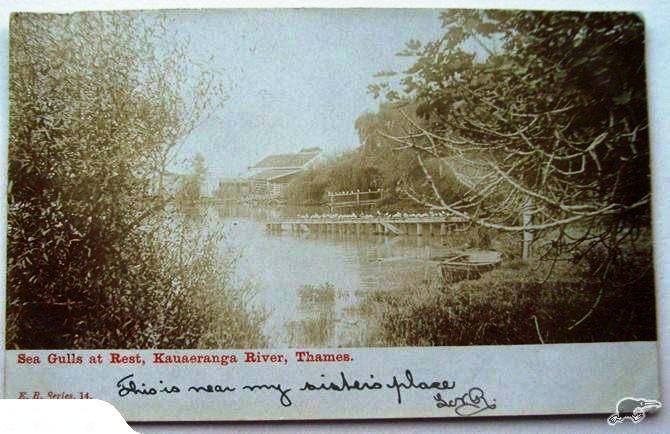 Sea Gulls at Rest, Kauaeranga River, Thames.
This is near my sister's place